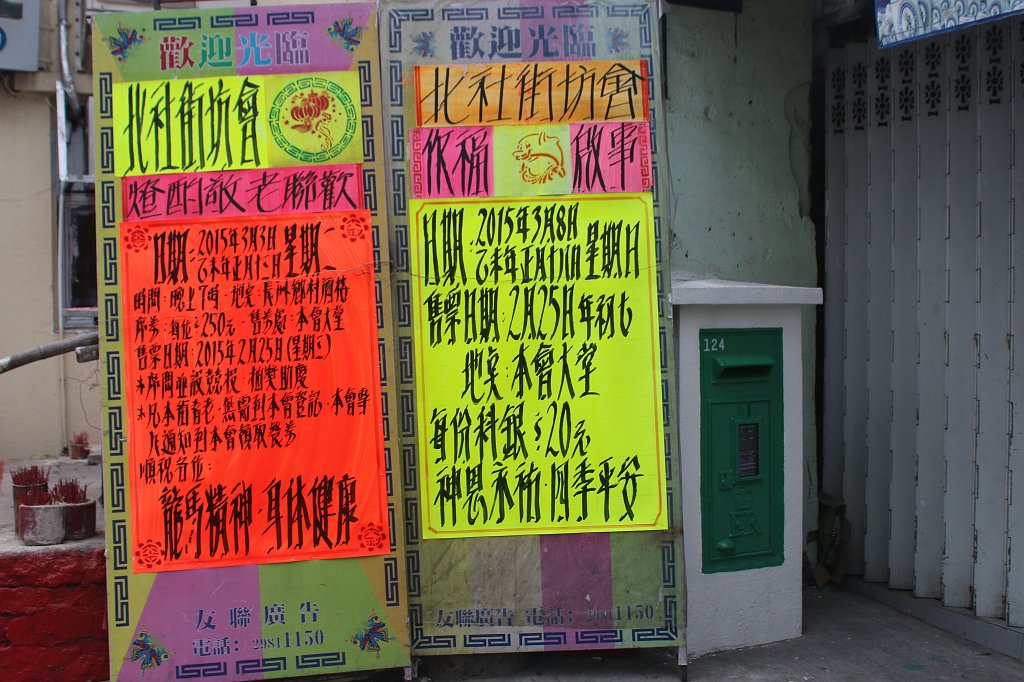 歡迎光臨
北社街坊會
燈酌敬老聯歡
日期：2015年3月3日 星期二
乙未年正月十三日
時間：晚上7時·地點：長洲鄉村酒樓
席券：每位$250元·售券處：本會大堂
售票日期：2015年2月25日(星期三)
*席間並設競投·抽獎助慶
*凡本街耆老·無需到本會登記·本會專
人通知到本會領取餐券
順祝各位：
龍馬精神·身体健康
友聯廣告
電話：29811150
歡迎光臨
北社街坊會
飲福 啟事
日期：2015年3月8日 星期日
乙未年正月十八日
售票日期：2月25日年初七
地點：本會大堂
每份科銀$20元
神恩永祐·四季平安
友聯廣告 電話：29811150
124
EIIR